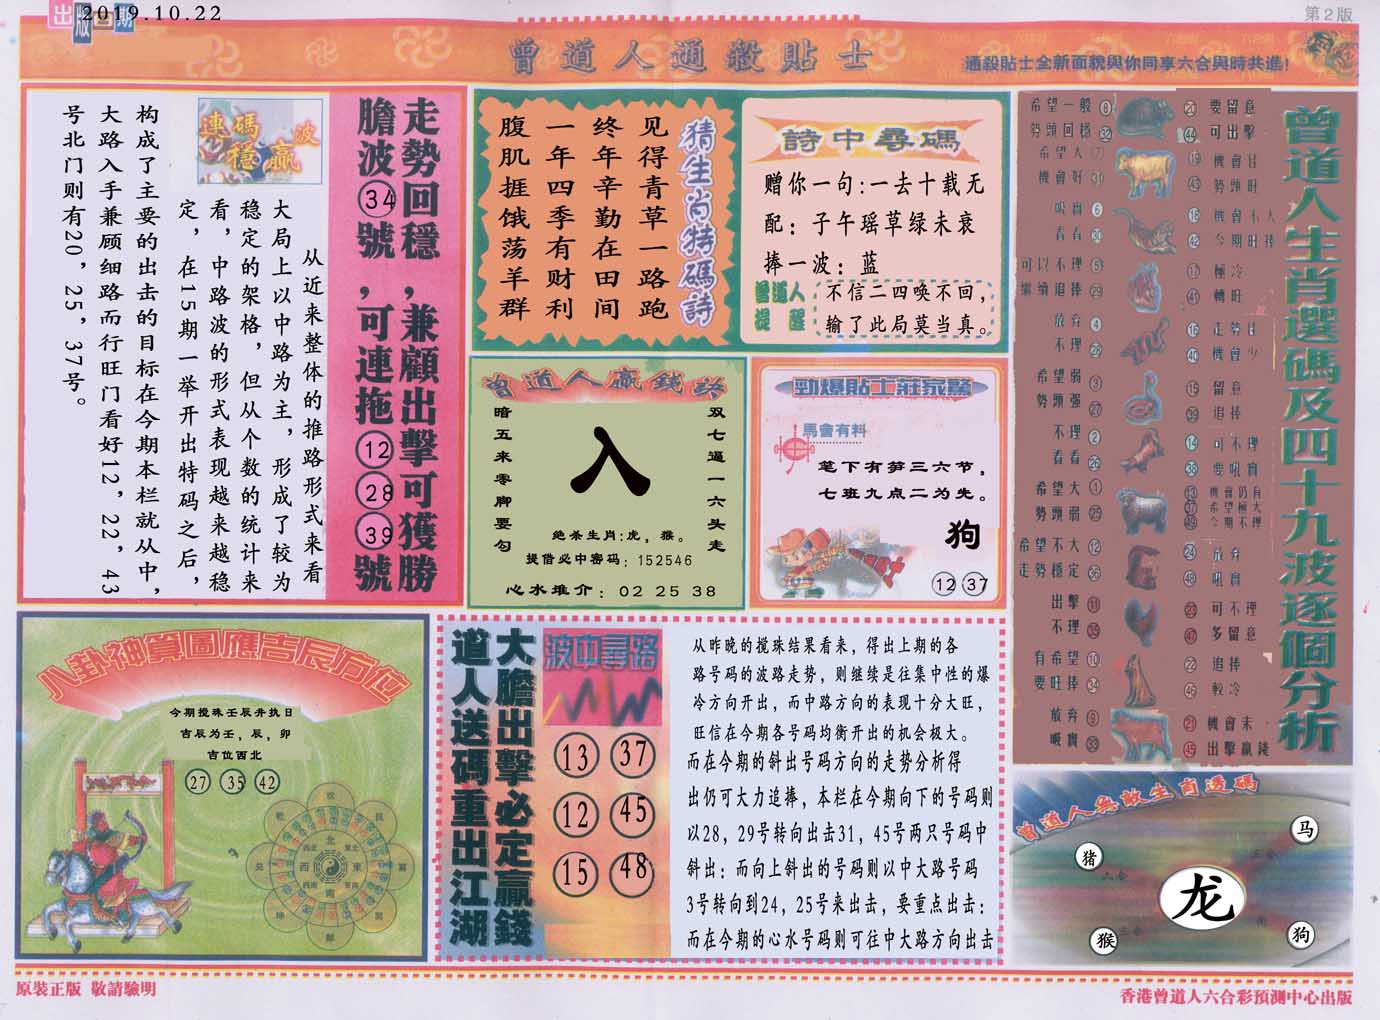 出版日期
2019.10.22
第2版
曾道人通殺貼士
通殺貼士全新面貌與你同享六合與時共進!
走勢回穩,兼顧出擊可獲勝
膽波34號,可連拖12 28 39號
連碼波
穩贏
从近来整体的推路形式来看
大局上以中路为主，形成了较为
稳定的架格，但从个数的统计来
看，中路波的形式表现越来越稳
定，在15期一举开出特码之后，
构成了主要的出击的目标在今期本栏就从中，
大路入手兼顾细路而行旺门看好12，22，43
号北门则有20，25，37号。
猜生肖特碼詩
见得青草一路跑
终年辛勤在田间
一年四季有财利
腹肌捱饿荡羊群
詩中尋碼
赠你一句:一去十载无
配：子午瑶草绿未衰
捧一波：蓝
曾道人
提醒
不信二四唤不回，
输了此局莫当真。
曾道人贏錢訣
双七逼一六头走
暗五来零脚要勾
入
绝杀生肖:虎，猴。
提借必中密码：152546
心水推介：02 25 38
勁爆貼士莊家驚
馬會有料
笔下有笋三六节，
七班九点二为先。
狗
12 37
曾道人生肖選碼及四十九波逐個分析
希望一般 8
勢頭回穩 32
希望大
機會好 31
吸實 6
看看 30
可以不理 5
繼續追捧 29
放弃 4
不理
希望弱 3
勢頭强 27
不理 2
看看 26
希望大 1
勢頭弱 25
希望不大 12
走勢穩定 36
出擊 11
不理 35
有希望 10
要旺捧 34
放弃 9
吸實 33
20 要留意
44 可出擊
19 機會佳
43 勢頭旺
18 機會不大
42 今期旺捧
17 極冷
41 轉旺
16 走勢佳
40 機會少
15 留意
39 追捧
14 可不理
38 要吸實
13 機會仍有
37 希望極大
49 今期不理
24 放弃
48 吸實
23 可不理
47 多留意
22 追捧
46 較冷
21 機會末
45 出擊贏錢
八卦神算圖應吉辰方位
今期搅珠壬辰井执日
吉辰为壬，辰，卯
吉位西北
27 35 42
大膽出擊必定贏錢
道人送碼重出江湖
波中尋路
13 37
12 45
15 48
从昨晚的搅珠结果看来，得出上期的各
路号码的波路走势，则继续是往集中性的爆
冷方向开出，而中路方向的表现十分大旺，
旺信在今期各号码均衡开出的机会极大。
而在今期的斜出号码方向的走势分析得
出仍可大力追捧，本栏在今期向下的号码则
以28，29号转向出击31，45号两只号码中
斜出：而向上斜出的号码则以中大路号码
3号转向到24，25号来出击，要重点出击：
而在今期的心水号码则可往中大路方向出击
曾道人無敵生肖透碼
猪
马
龙
猴
狗
原裝正版 敬請驗明
香港曾道人六合彩預測中心出版